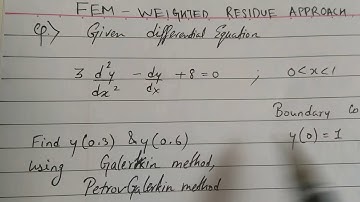 FEM - WEIGHTED RESIDUE APPROACH
Q> Given differential Equation
3 d²y/dx² - dy/dx + 8 = 0 ; 0<x<1
Boundary Co
Find y(0.3) & y(0.6) y(0) = 1
using Galerkin method,
PetrovGalerkin method